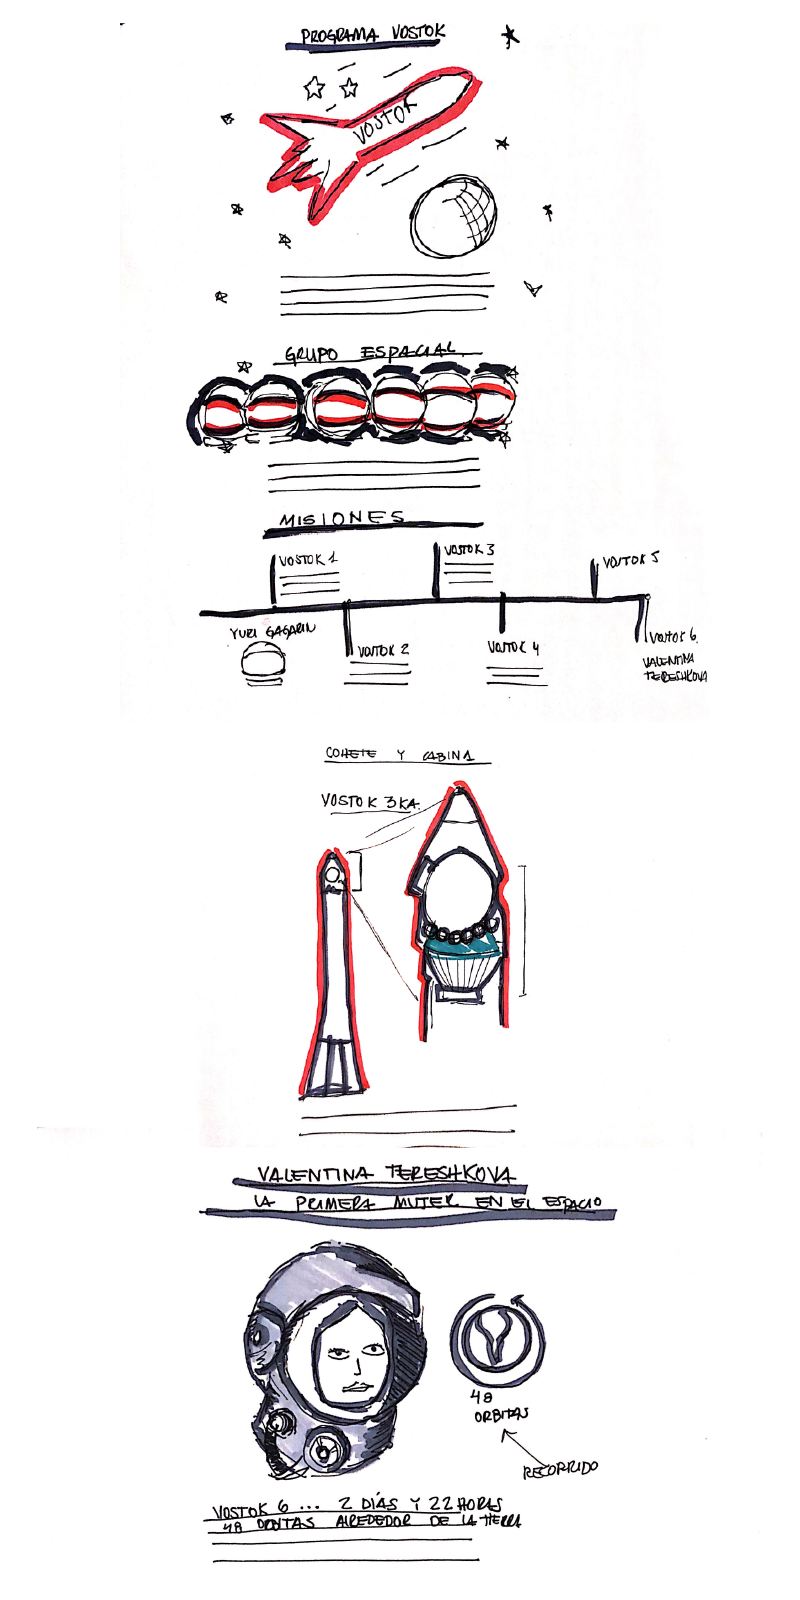 PROGRAMA VOSTOK
VOSTOK
GRUPO ESPACIAL
MISIONES
VOSTOK 1
VOSTOK 3
VOSTOK 5
YURI GAGARIN
VOSTOK 2
VOSTOK 4
VOSTOK 6
VALENTINA
TERESHKOVA
COHETE Y CABINA
VOSTOK 3KA.
VALENTINA TERESHKOVA
LA PRIMERA MUJER EN EL ESPACIO
48
ORBITAS
RECORRIDO
VOSTOK 6 ... 2 DÍAS Y 22 HORAS
48 ORBITAS ALREDEDOR DE LA TIERRA